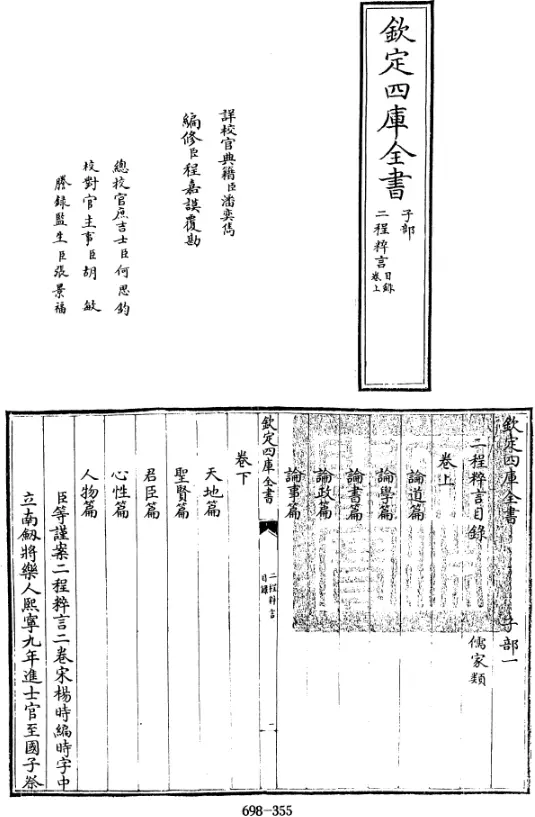 欽定四庫全書
子部
二程粹言
目錄
卷上
詳校官典籍臣潘奕雋
編修臣程嘉謨覆勘
總校官庶吉士臣何思鈞
校對官主事臣胡敏
謄錄監生臣張景福
欽定四庫全書
子部一
二程粹言目錄
儒家類
卷上
論道篇
論學篇
論書篇
論政篇
論事篇
欽定四庫全書
二程粹言
目錄
一
卷下
天地篇
聖賢篇
君臣篇
心性篇
人物篇
臣等謹案二程粹言二卷宋楊時編時字中
立南劔將樂人熙寧九年進士官至國子祭
698-355